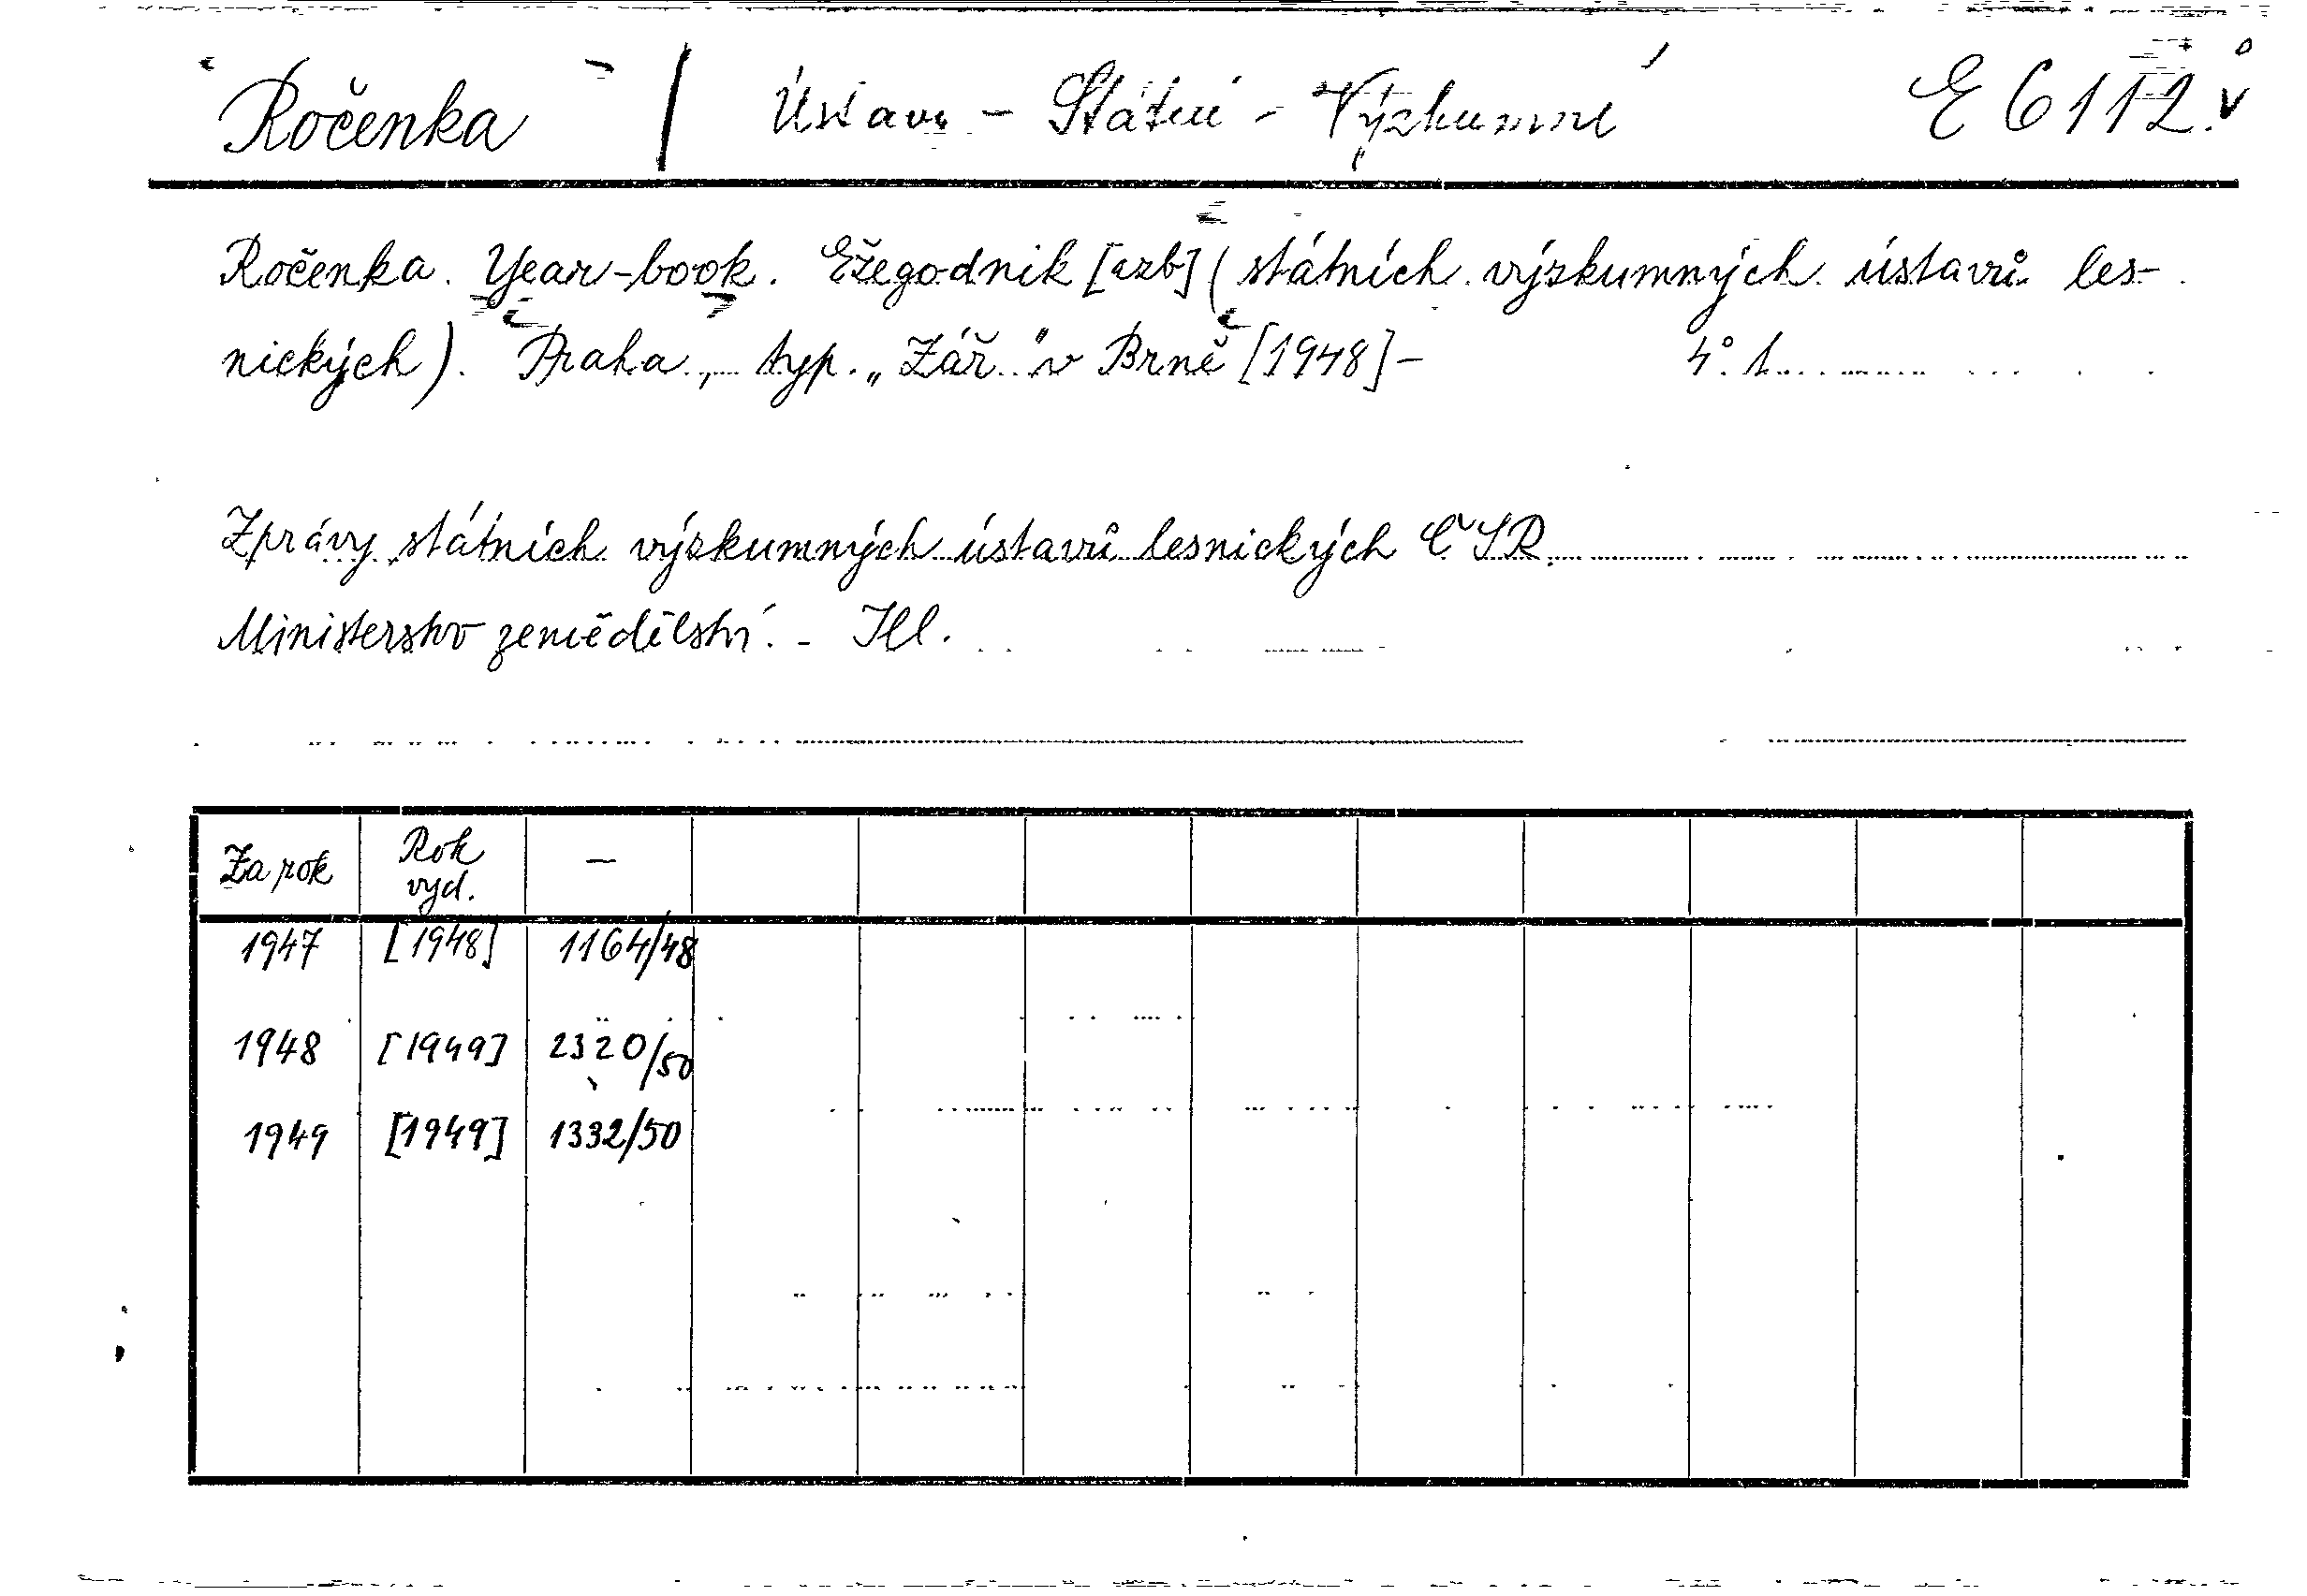 Ročenka / Ústavy - Státní - Výzkumné E 6112.
Ročenka. Year-book. Ežegodnik [azb] (státních výzkumných ústavů les-
nických). Praha, typ. „Zář" v Brně [1948]- 4°.
Zprávy státních výzkumných ústavů lesnických ČSR.
Ministerstvo zemědělství. - Ill.
Za rok Rok vyd. —
1947 [1948] 1164/48
1948 [1949] 2320/50
1949 [1949] 1332/50